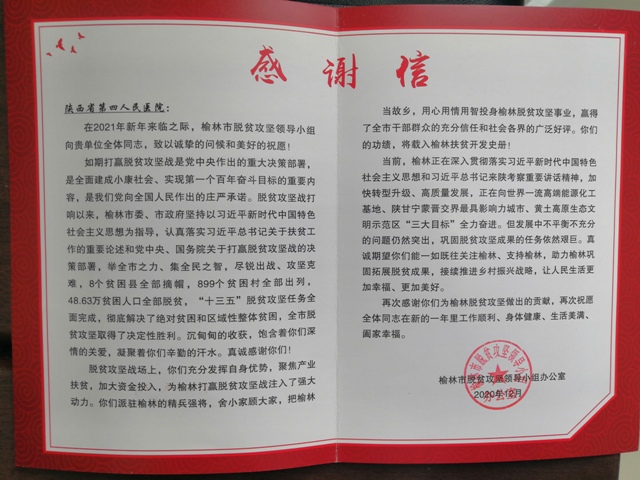 感谢信
陕西省第四人民医院：
在2021年新年来临之际，榆林市脱贫攻坚领导小组
向贵单位全体同志，致以诚挚的问候和美好的祝愿！
如期打赢脱贫攻坚战是党中央作出的重大决策部署，
是全面建成小康社会、实现第一个百年奋斗目标的重要内
容，是我们党向全国人民作出的庄严承诺。脱贫攻坚战打
响以来，榆林市委、市政府坚持以习近平新时代中国特色
社会主义思想为指导，认真落实习近平总书记关于扶贫工
作的重要论述和党中央、国务院关于打赢脱贫攻坚战的决
策部署，举全市之力、集全民之智，尽锐出战、攻坚克
难，8个贫困县全部摘帽，899个贫困村全部出列，
48.63万贫困人口全部脱贫，“十三五”脱贫攻坚任务全
面完成，彻底解决了绝对贫困和区域性整体贫困，全市脱
贫攻坚取得了决定性胜利。沉甸甸的收获，饱含着你们深
情的关爱，凝聚着你们辛勤的汗水。真诚感谢你们！
脱贫攻坚战场上，你们充分发挥自身优势，聚焦产业
扶贫，加大资金投入，为榆林打赢脱贫攻坚战注入了强大
动力。你们派驻榆林的精兵强将，舍小家顾大家，把榆林
当故乡，用心用情用智投身榆林脱贫攻坚事业，赢得
了全市干部群众的充分信任和社会各界的广泛好评。你们
的功绩，将载入榆林扶贫开发史册！
当前，榆林正在深入贯彻落实习近平新时代中国特色
社会主义思想和习近平总书记来陕考察重要讲话精神，加
快转型升级、高质量发展，正在向世界一流高端能源化工
基地、陕甘宁蒙晋交界最具影响力城市、黄土高原生态文
明示范区“三大目标”全力奋进。但发展中不平衡不充分
的问题仍然突出，巩固脱贫攻坚成果的任务依然艰巨。真
诚期望你们能一如既往关注榆林、支持榆林，助力榆林巩
固拓展脱贫成果，接续推进乡村振兴战略，让人民生活更
加幸福、更加美好。
再次感谢你们为榆林脱贫攻坚做出的贡献，再次祝愿
全体同志在新的一年里工作顺利、身体健康、生活美满、
阖家幸福。
榆林市脱贫攻坚领导小组办公室
2020年12月